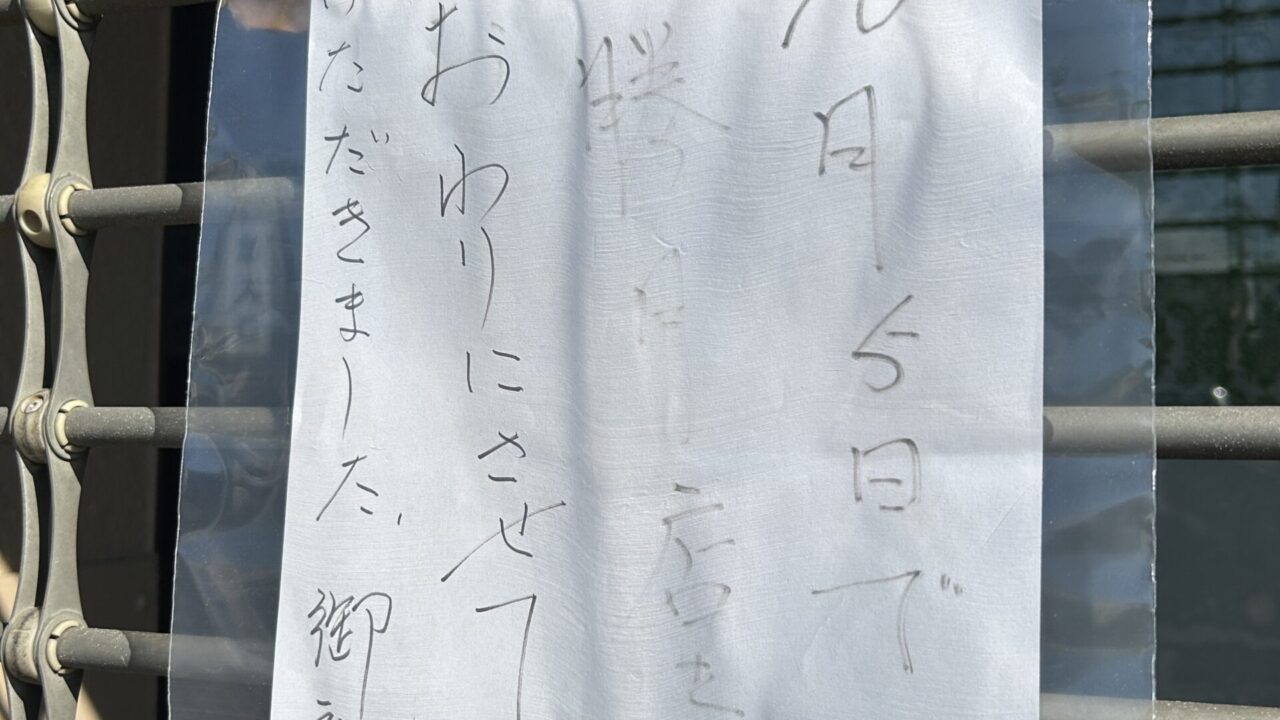 九月5日で
勝店を
おわりにさせて
いただきました、御